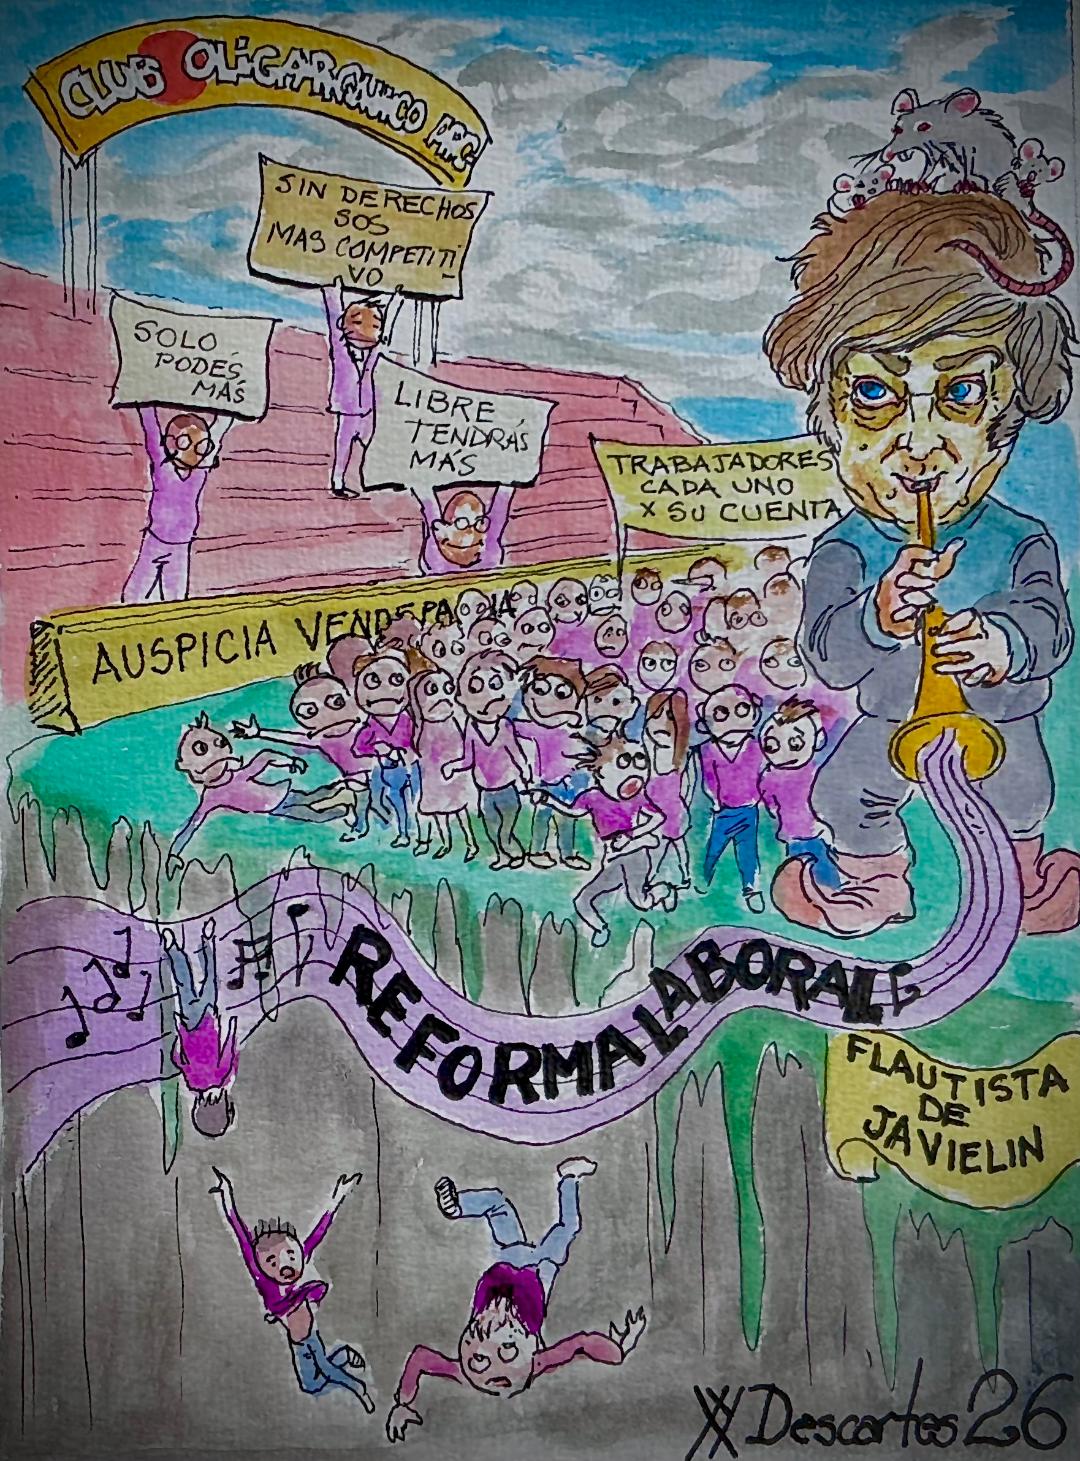 CLUB OLIGARQUICO ARG
SIN DERECHOS
SOS
MAS COMPETITI
VO
SOLO
PODÉS
MÁS
LIBRE
TENDRÁS
MÁS
TRABAJADORES
CADA UNO
X SU CUENTA
AUSPICIA VENDEPATRIA
REFORMA LABORAL
FLAUTISTA
DE
JAVIELIN
Descartes 26